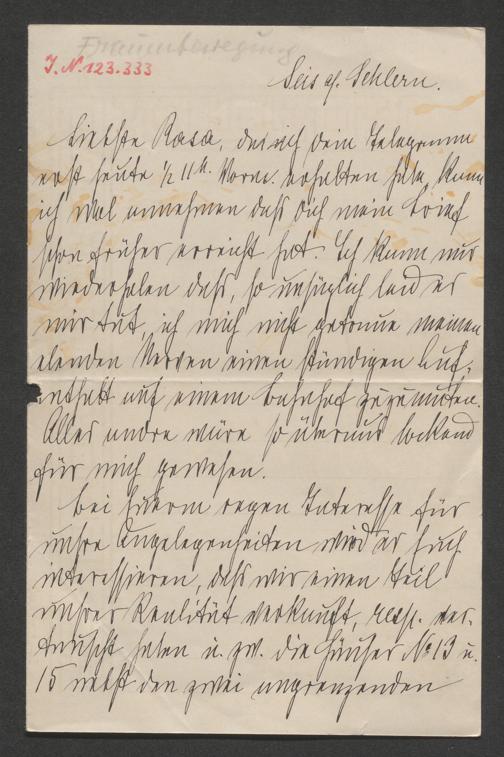 Frauenbewegung
I.N. 123.333
Seis a/. Schlern.
Liebste Rosa, da ich dein Telegramm
erst heute ½ 11h. Vorm. erhalten habe, kann
ich wol annehmen daß dich mein Brief
schon früher erreicht hat. Ich kann nur
wiederholen daß, so unsäglich leid es
mir tut, ich mich nicht getraue meinen
elenden Nerven einen stündigen Auf-
enthalt auf einem Bahnhof zuzumuten.
Alles andre wäre so überaus lockend
für mich gewesen.
Bei Eurem regen Interesse für
unsre Angelegenheiten wird es Euch
interessieren, daß wir einen Teil
unsrer Realität verkauft, resp. ver-
tauscht haben u. zw. die Häuser No 13 u.
15 nebst den zwei angrenzenden